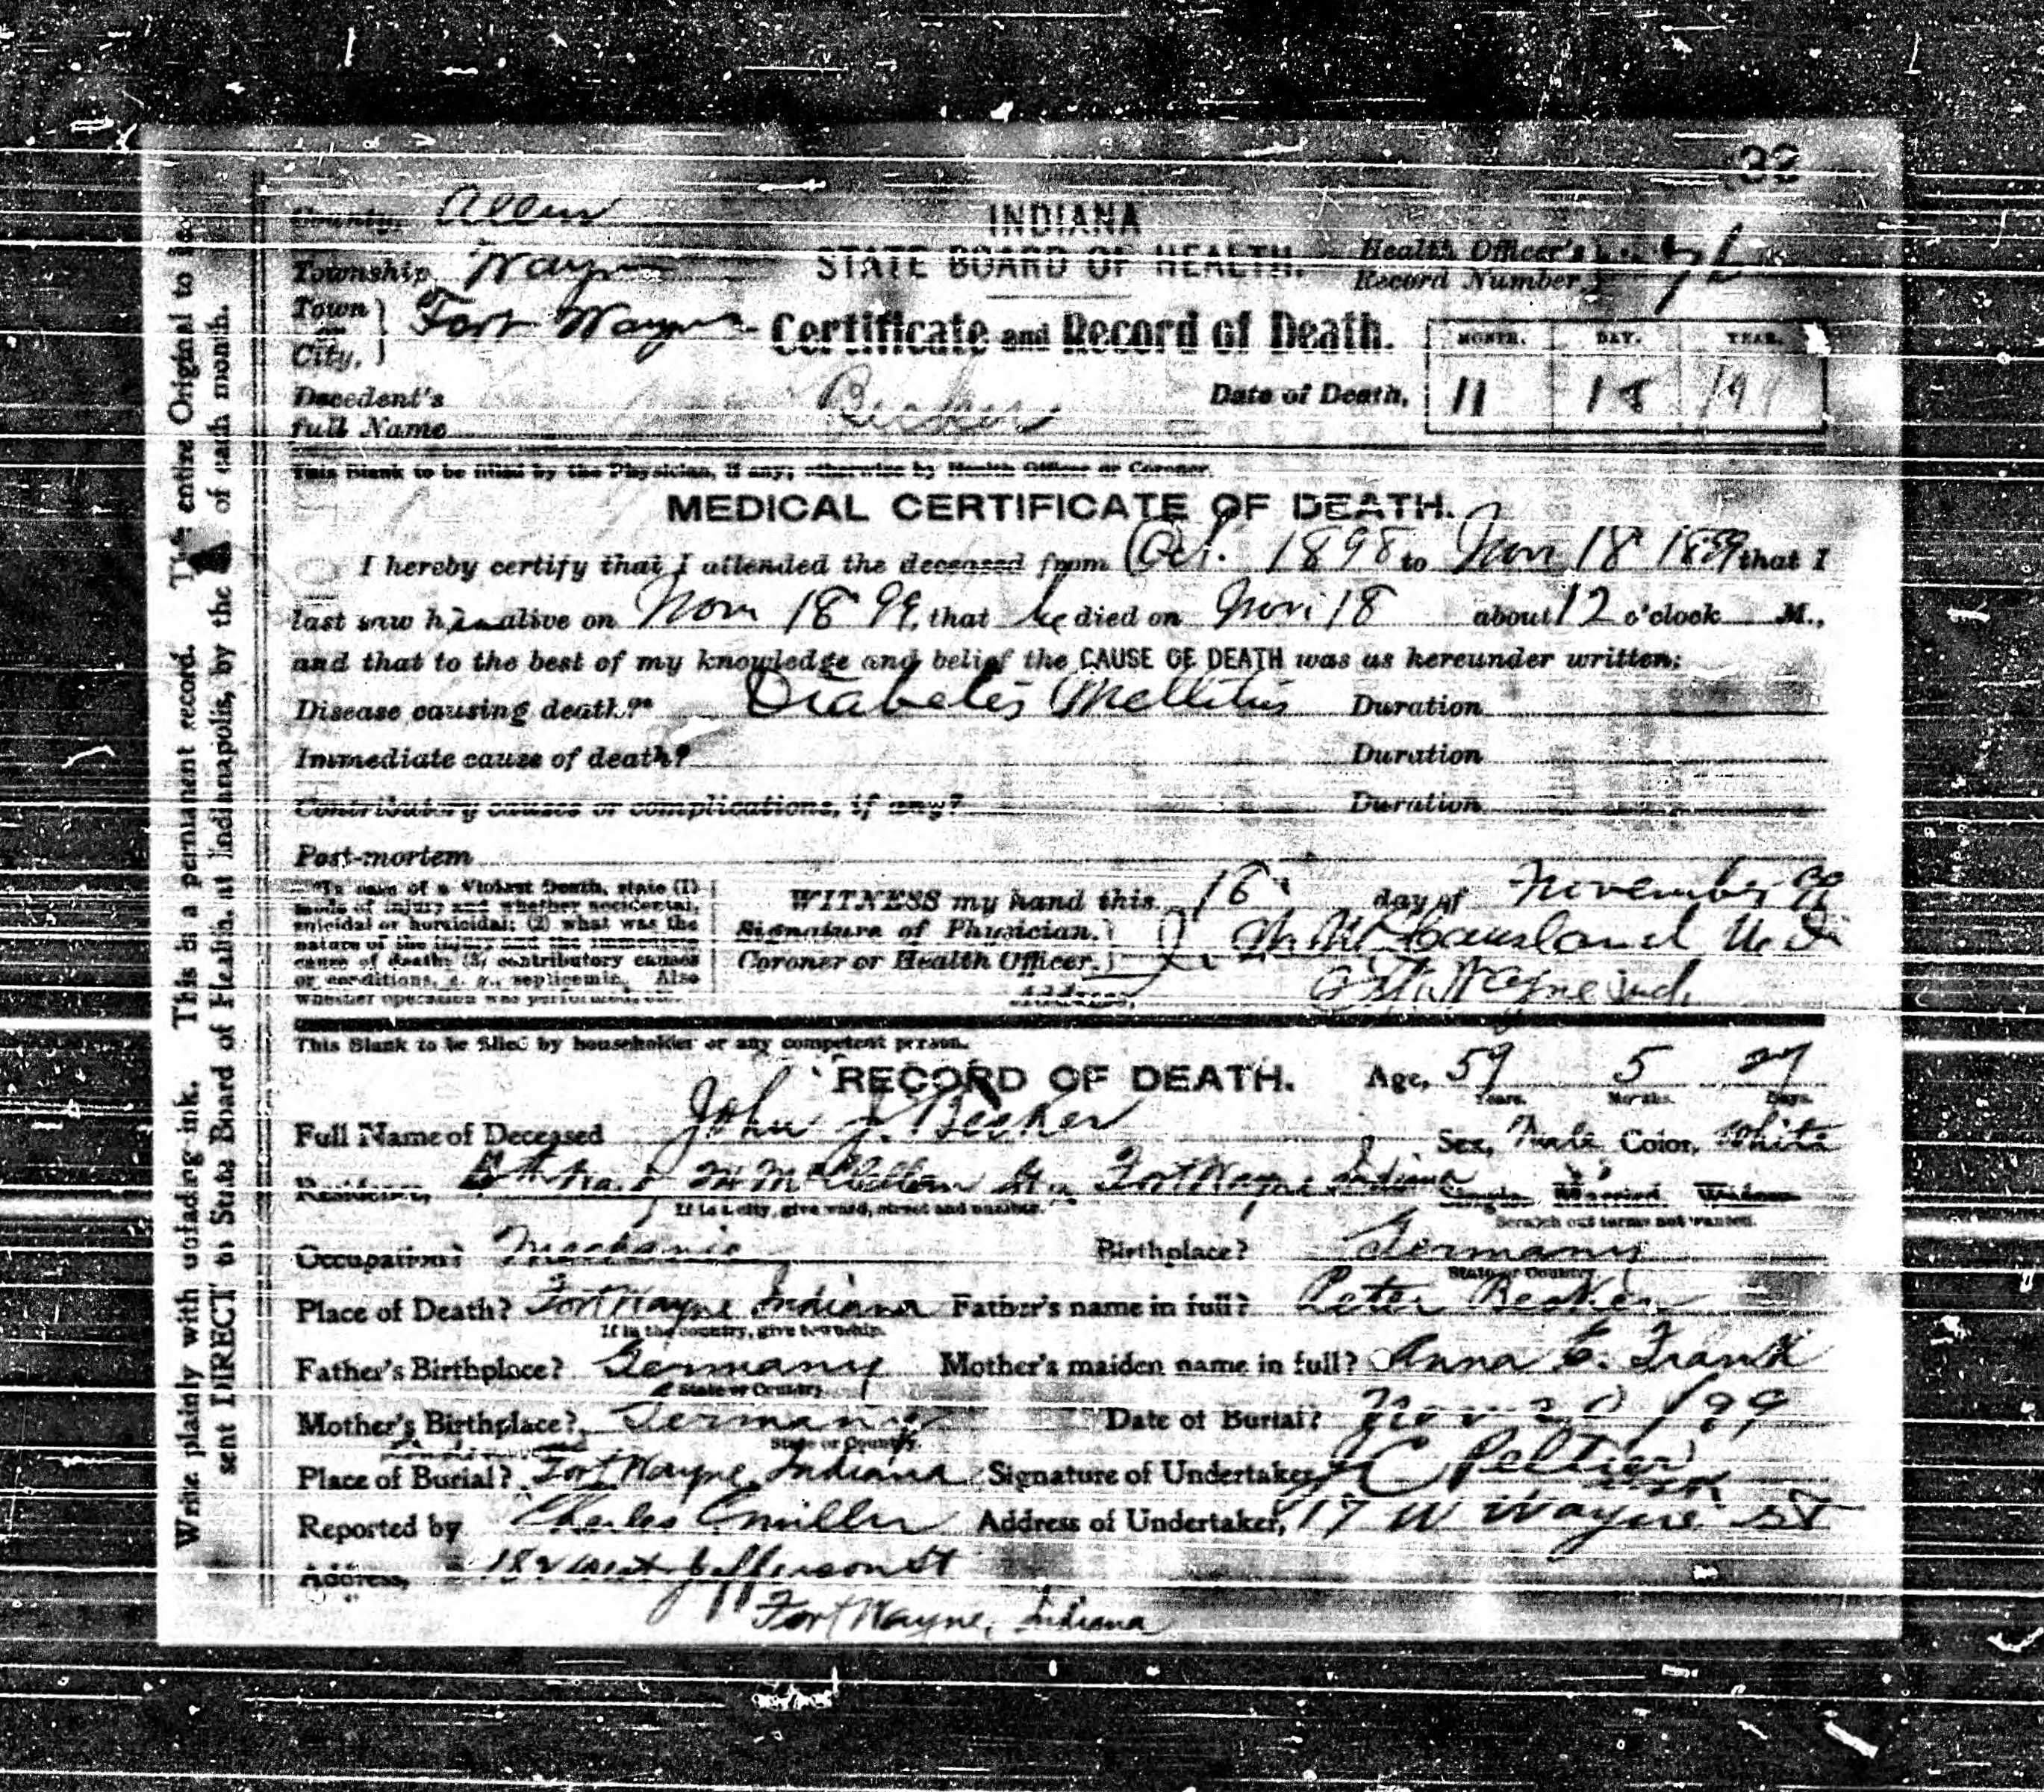 32
County, Allen
INDIANA
STATE BOARD OF HEALTH.
Health Officer's
Record Number,
Township Wayne
Town or City, Fort Wayne
Certificate and Record of Death.
MONTH. DAY. YEAR.
Decedent's full Name Becker
Date of Death, 11 18
This Blank to be filled by the Physician, if any; otherwise by Health Officer or Coroner.
MEDICAL CERTIFICATE OF DEATH.
I hereby certify that I attended the deceased from Oct. 1898 to Nov 18 1899 that I
last saw him alive on Nov 18 99, that he died on Nov 18 about 12 o'clock M.,
and that to the best of my knowledge and belief the CAUSE OF DEATH was as hereunder written:
Disease causing death?* Diabetes Mellitus Duration
Immediate cause of death? Duration
Contributory causes or complications, if any? Duration
Post-mortem
*In case of a Violent Death, state (1)
mode of injury and whether accidental,
suicidal or homicidal; (2) what was the
nature of the injury and the immediate
cause of death; (3) contributory causes
or conditions, e. g., septicemia. Also
whether operation was performed, etc.
WITNESS my hand this 18 day of November 99
Signature of Physician,
Coroner or Health Officer.
McCausland M. D.
Address, Ft. Wayne Ind.
This Blank to be filled by householder or any competent person.
RECORD OF DEATH.
Age, 59 Years. 5 Months. 27 Days.
Full Name of Deceased John J. Becker
Sex, Male Color, White
Residence, McClellan St. Fort Wayne Indiana
Single Married Widow
If in a city, give ward, street and number.
Scratch out terms not wanted.
Occupation? Mechanic
Birthplace? Germany
State or Country
Place of Death? Fort Wayne Indiana
Father's name in full? Peter Becker
If in the country, give township.
Father's Birthplace? Germany
Mother's maiden name in full? Anna E. Frank
State or Country
Mother's Birthplace? Germany
Date of Burial? Nov 20 / 99
State or Country
Place of Burial? Fort Wayne, Indiana
Signature of Undertaker, J C Peltier
Reported by Charles Miller
Address of Undertaker, 17 W Wayne St
Address, 182 West Jefferson St
Fort Wayne, Indiana
Write plainly with unfading ink. This is a permanent record. The entire Original to be
sent DIRECT to State Board of Health, at Indianapolis, by the of each month.